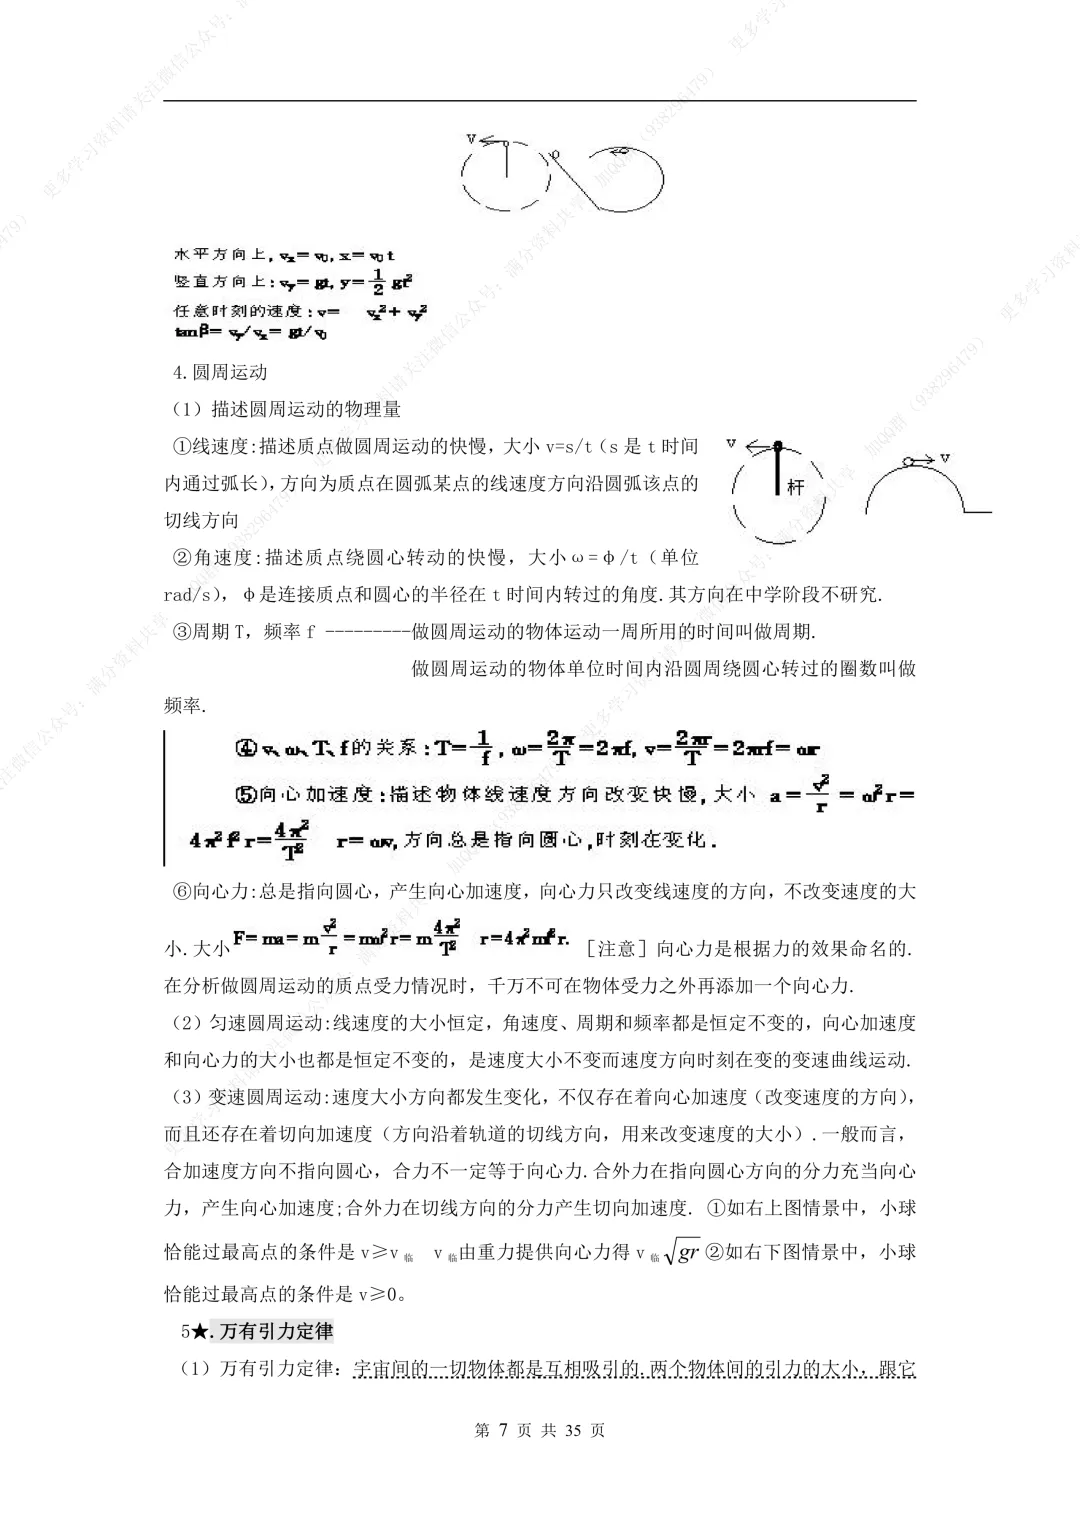 v
水平方向上, vx=v0, x=v0t
竖直方向上:vy=gt, y=1/2 gt²
任意时刻的速度:v= vx²+vy²
tanβ=vy/vx=gt/v0
4.圆周运动
（1）描述圆周运动的物理量
①线速度:描述质点做圆周运动的快慢，大小 v=s/t（s 是 t 时间
内通过弧长），方向为质点在圆弧某点的线速度方向沿圆弧该点的
切线方向
v
杆
v
②角速度:描述质点绕圆心转动的快慢，大小ω=φ/t（单位
rad/s），φ是连接质点和圆心的半径在 t 时间内转过的角度.其方向在中学阶段不研究.
③周期 T，频率 f ---------做圆周运动的物体运动一周所用的时间叫做周期.
做圆周运动的物体单位时间内沿圆周绕圆心转过的圈数叫做
频率.
④v、ω、T、f的关系:T=1/f, ω=2π/T=2πf, v=2πr/T=2πrf=ωr
⑤向心加速度:描述物体线速度方向改变快慢,大小 a=v²/r=ω²r=
4π²f²r=4π²/T² r=ωv,方向总是指向圆心,时刻在变化.
⑥向心力:总是指向圆心，产生向心加速度，向心力只改变线速度的方向，不改变速度的大
小.大小F=ma=m v²/r=mω²r=m 4π²/T² r=4π²mf²r.［注意］向心力是根据力的效果命名的.
在分析做圆周运动的质点受力情况时，千万不可在物体受力之外再添加一个向心力.
（2）匀速圆周运动:线速度的大小恒定，角速度、周期和频率都是恒定不变的，向心加速度
和向心力的大小也都是恒定不变的，是速度大小不变而速度方向时刻在变的变速曲线运动.
（3）变速圆周运动:速度大小方向都发生变化，不仅存在着向心加速度（改变速度的方向），
而且还存在着切向加速度（方向沿着轨道的切线方向，用来改变速度的大小）.一般而言，
合加速度方向不指向圆心，合力不一定等于向心力.合外力在指向圆心方向的分力充当向心
力，产生向心加速度;合外力在切线方向的分力产生切向加速度. ①如右上图情景中，小球
恰能过最高点的条件是 v≥v临 v临由重力提供向心力得 v临√gr ②如右下图情景中，小球
恰能过最高点的条件是 v≥0。
5★.万有引力定律
（1）万有引力定律：宇宙间的一切物体都是互相吸引的.两个物体间的引力的大小，跟它
第 7 页 共 35 页